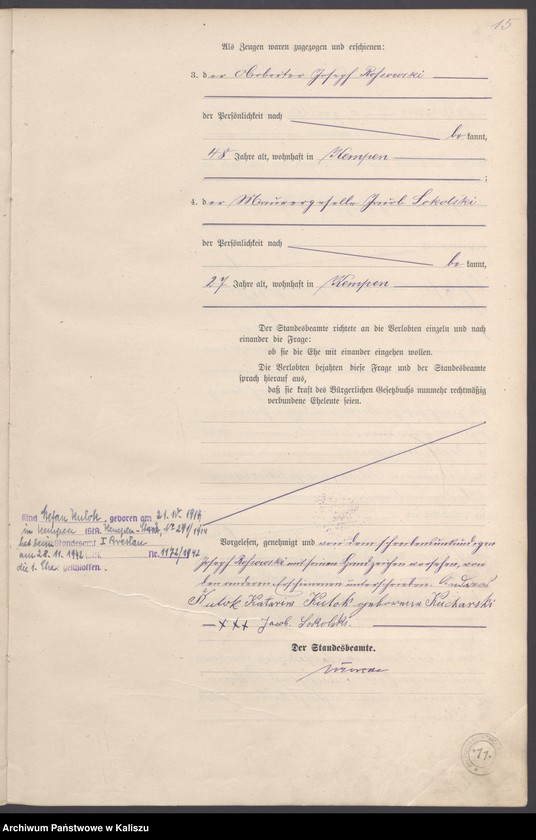 15
Als Zeugen waren zugezogen und erschienen:
3. der Arbeiter Joseph Rossowski
der Persönlichkeit nach
bekannt,
48 Jahre alt, wohnhaft in Kempen
;
4. der Maurergeselle Jacob Sokolski
der Persönlichkeit nach
bekannt,
27 Jahre alt, wohnhaft in Kempen
Der Standesbeamte richtete an die Verlobten einzeln und nach
einander die Frage:
ob sie die Ehe mit einander eingehen wollen.
Die Verlobten bejahten diese Frage und der Standesbeamte
sprach hierauf aus,
daß sie kraft des Bürgerlichen Gesetzbuchs nunmehr rechtmäßig
verbundene Eheleute seien.
Kind Stefan Kulok, geboren am 21. 1914
in Kempen Kempen-Stadt, Nr 291/1914
hat beim Standesamt I Breslau
am 28. 11. 1942 Nr. 1172/1942
die 1. Ehe geschlossen.
Vorgelesen, genehmigt und von dem schreibensunkundigen
Joseph Rossowski mit seinem Handzeichen versehen, von
den anderen Erschienenen unterschrieben. Andreas
Kulok Katarina Kulok geborene Kucharski
+++ Jacob Sokolski.
Der Standesbeamte.
11
Archiwum Państwowe w Kaliszu